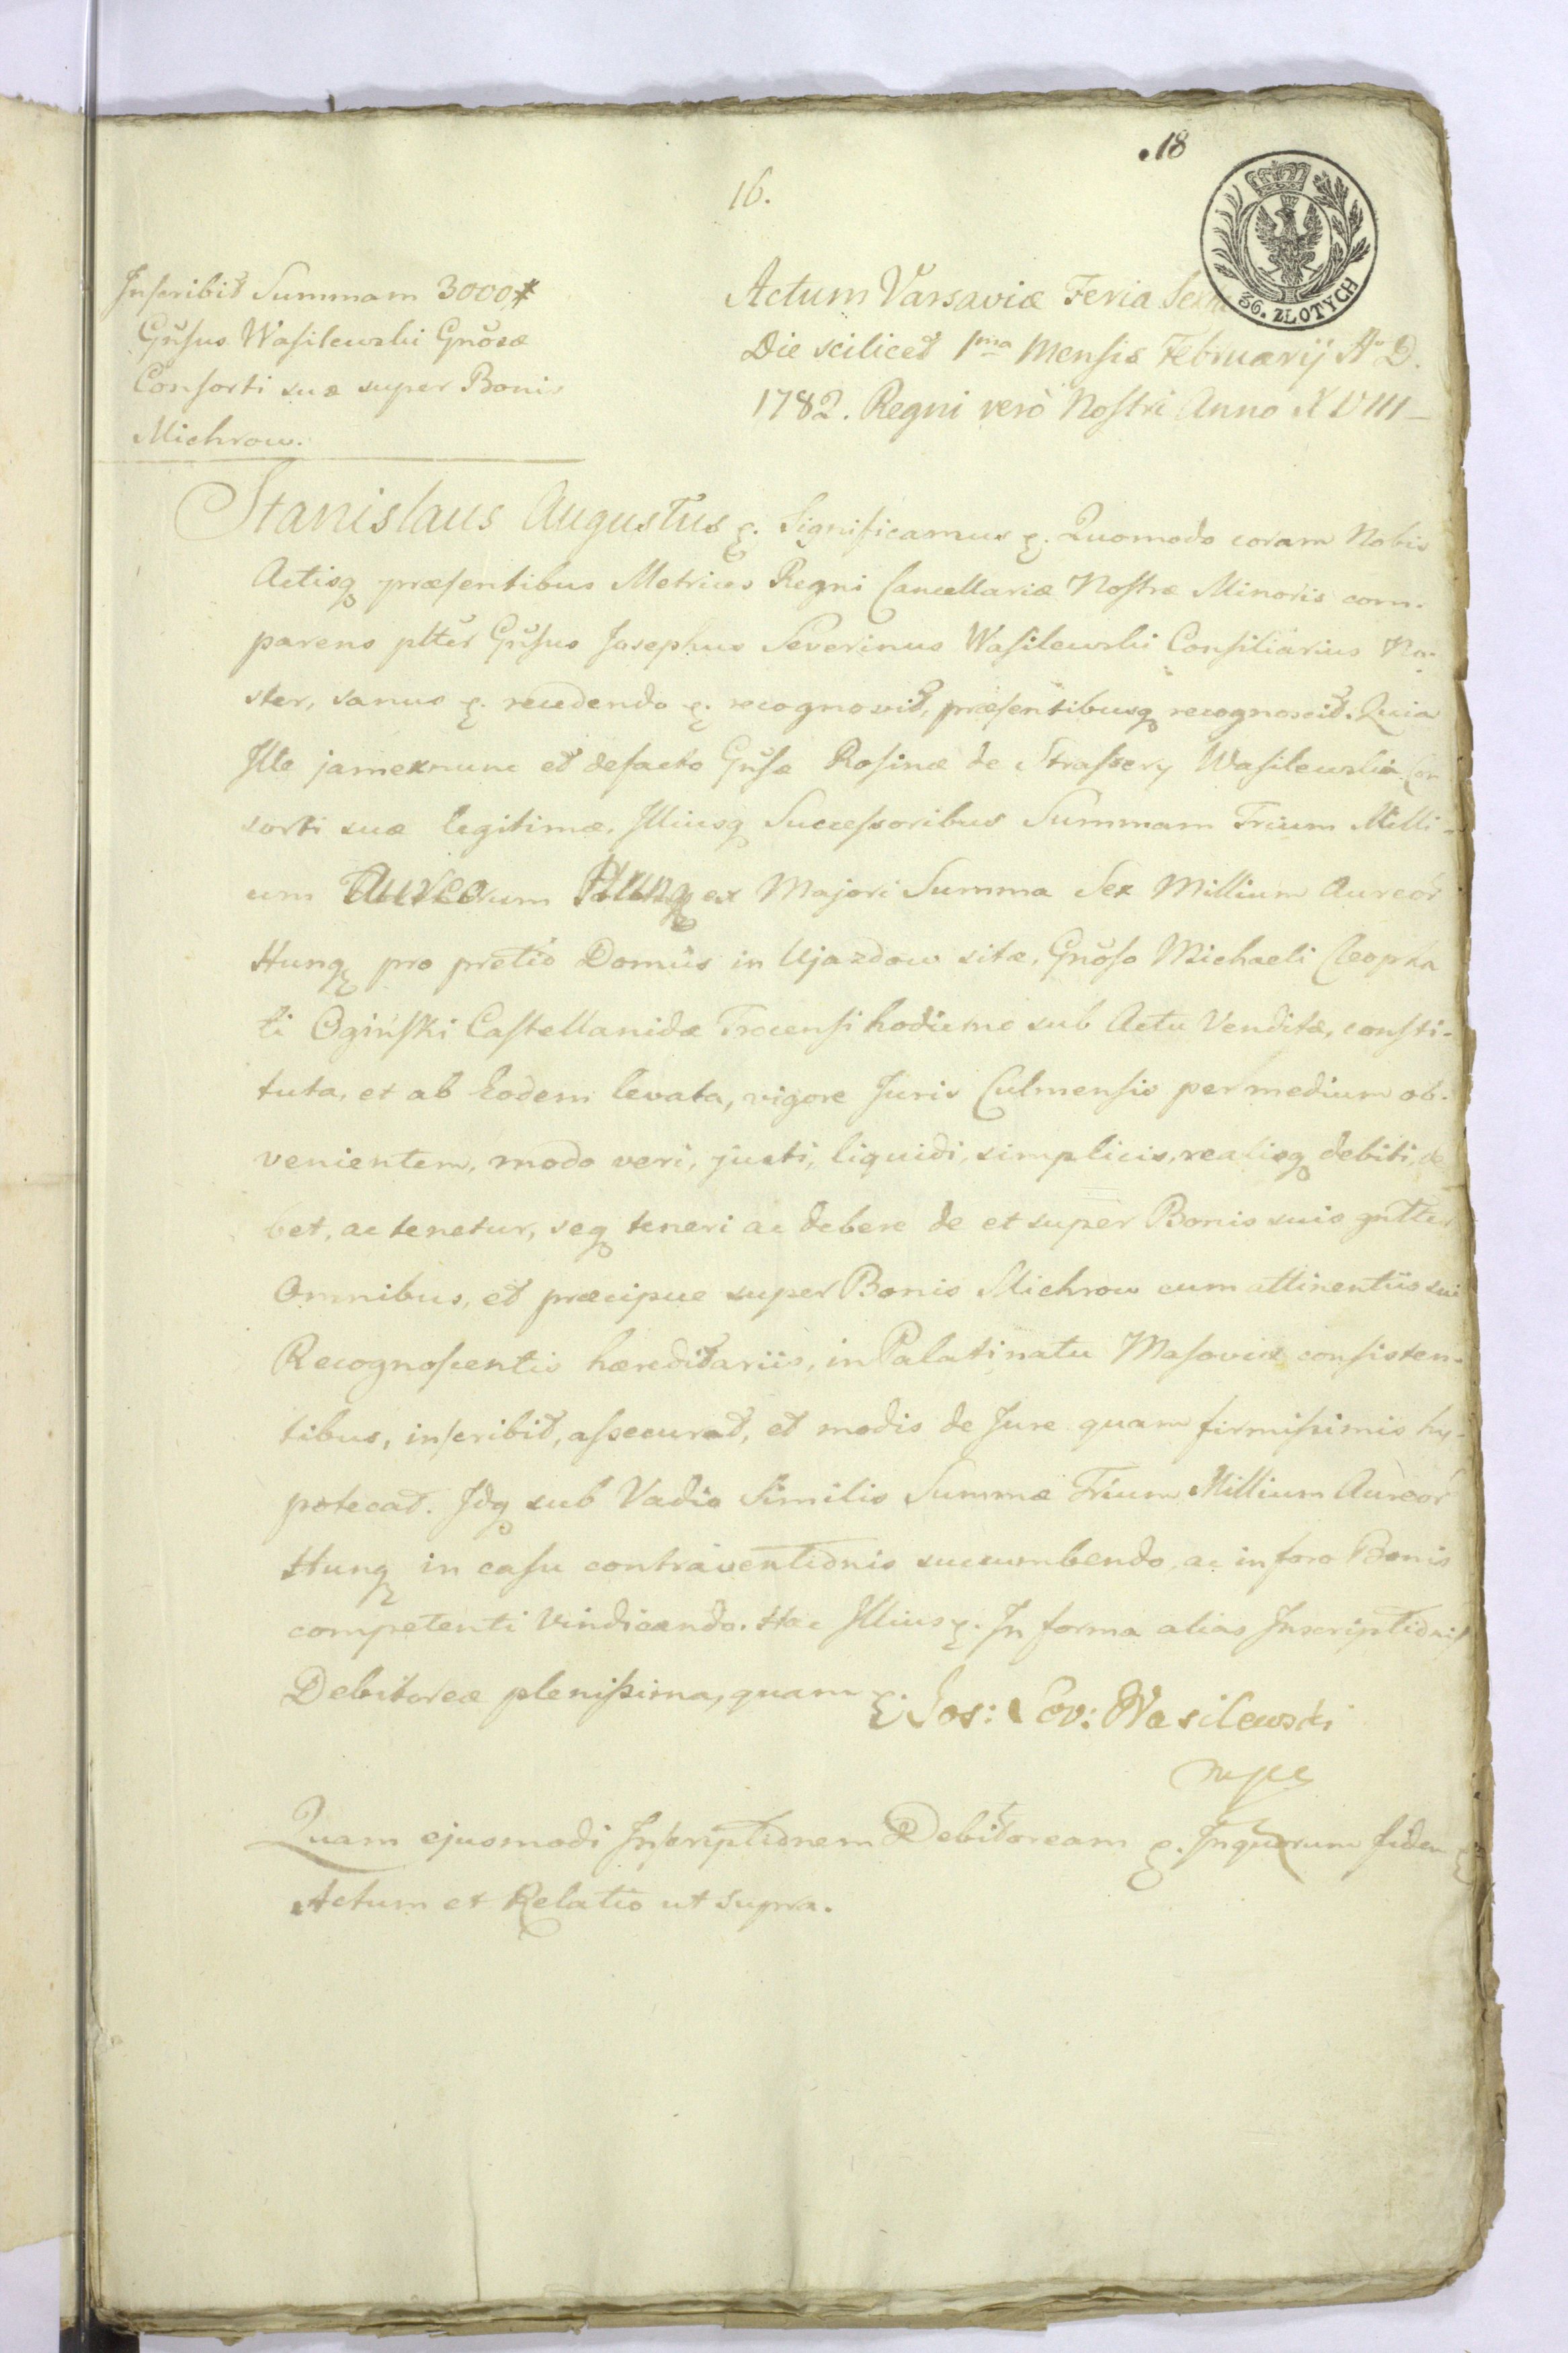 .18
16.
36. ZŁOTYCH
Inscribit Summam 3000#
Gnsus Wasilewski Gnosæ
Consorti suæ super Bonis
Michrow.
Actum Varsaviæ Feria Sexta
Die scilicet 1ma Mensis Februarij Ao D.
1782. Regni verò Nostri Anno XVIII_
Stanislaus Augustus &. Significamus &. Quomodo coram Nobis
Actisq præsentibus Metrices Regni Cancellariæ Nostræ Minoris com-
parens plter Gnsus Josephus Severinus Wasilewski Consiliarius No-
ster, sanus &. recedendo &. recognovit, præsentibusq recognoscit. Quia
Ille jamexnunc et defacto Gnsæ Rosinæ de Strassery Wasilewska Con
sorti suæ legitimæ, Illiusq Successoribus Summam Trium Milli-
um Aureorum Hung ex Majori Summa Sex Millium Aureor
Hung pro pretio Domûs in Ujazdow sitæ, Gnoso Michaeli Cleopha
ti Ogiński Castellanidæ Trocensi hodierno sub Actu Venditæ, consti-
tuta, et ab Eodem levata, vigore Juris Culmensis per medium ob-
venientem, modo veri, justi, liquidi, simplicis, realisq debiti, de
bet, ac tenetur, seq teneri ac debere de et super Bonis suis gntter
Omnibus, et præcipue super Bonis Michrow cum attinentiis sui
Recognoscentis hæreditariis, in Palatinatu Masoviæ consisten-
tibus, inscribit, assecurat, et modis de Jure quam firmissimis hy-
potecat. Idq sub Vadio Similis Summæ Trium Millium Aureor
Hung in casu contraventionis succumbendo, ac in foro Bonis
competenti Vindicando. Hac Illius &. In forma alias Inscriptionis
Debitoreæ plenissima, quam &. Jos: Sev: Wasilewski
mpp
Quam ejusmodi Inscriptionem Debitoream &. In quorum fidem &
Actum et Relatio ut supra.